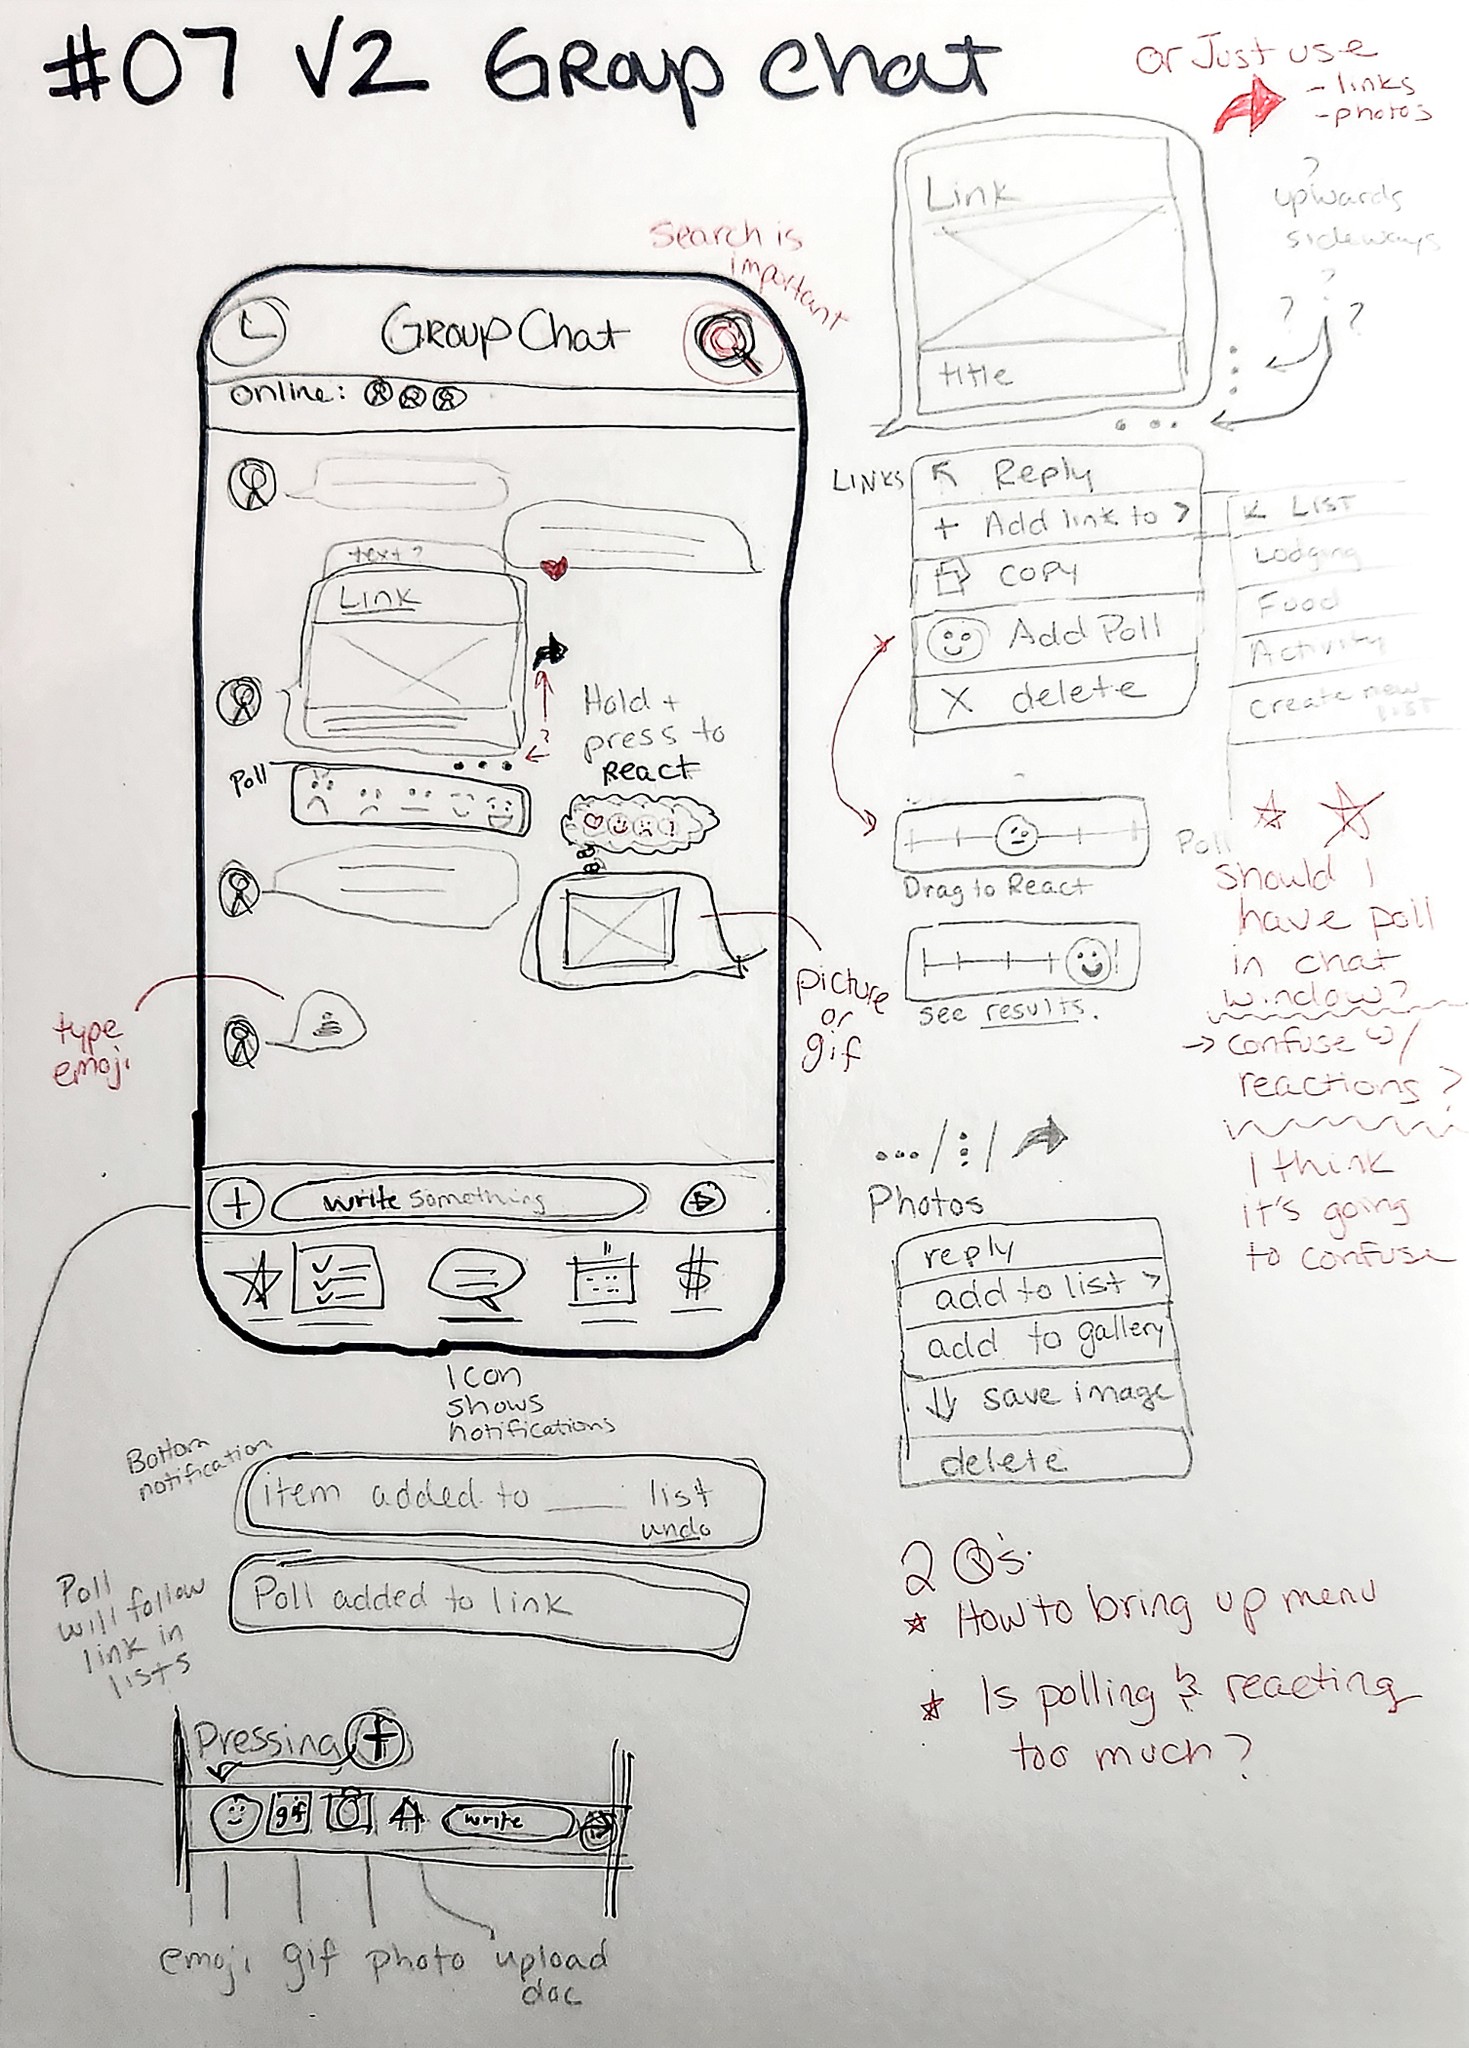 #07 V2 Group Chat
or Just use
- links
- photos
?
upwards
sideways
?
?
?
Link
title
search is
important
Group Chat
online:
text?
Link
?
Hold +
press to
React
Poll
type
emoji
picture
or
gif
+ write something
$
Icon
shows
notifications
LINKS
Reply
+ Add link to >
copy
Add Poll
X delete
< LIST
Lodging
Food
Activity
Create new
list
Poll
Drag to React
!
see results.
Should I
have poll
in chat
window?
→ confuse w/
reactions?
I think
it's going
to confuse
... / : /
Photos
reply
add to list >
add to gallery
save image
delete
Bottom
notification
item added to ____ list
undo
Poll added to link
Poll
will follow
link in
lists
2 Q's:
How to bring up menu
Is polling & reacting
too much?
Pressing +
gif
write
emoji gif photo upload
doc